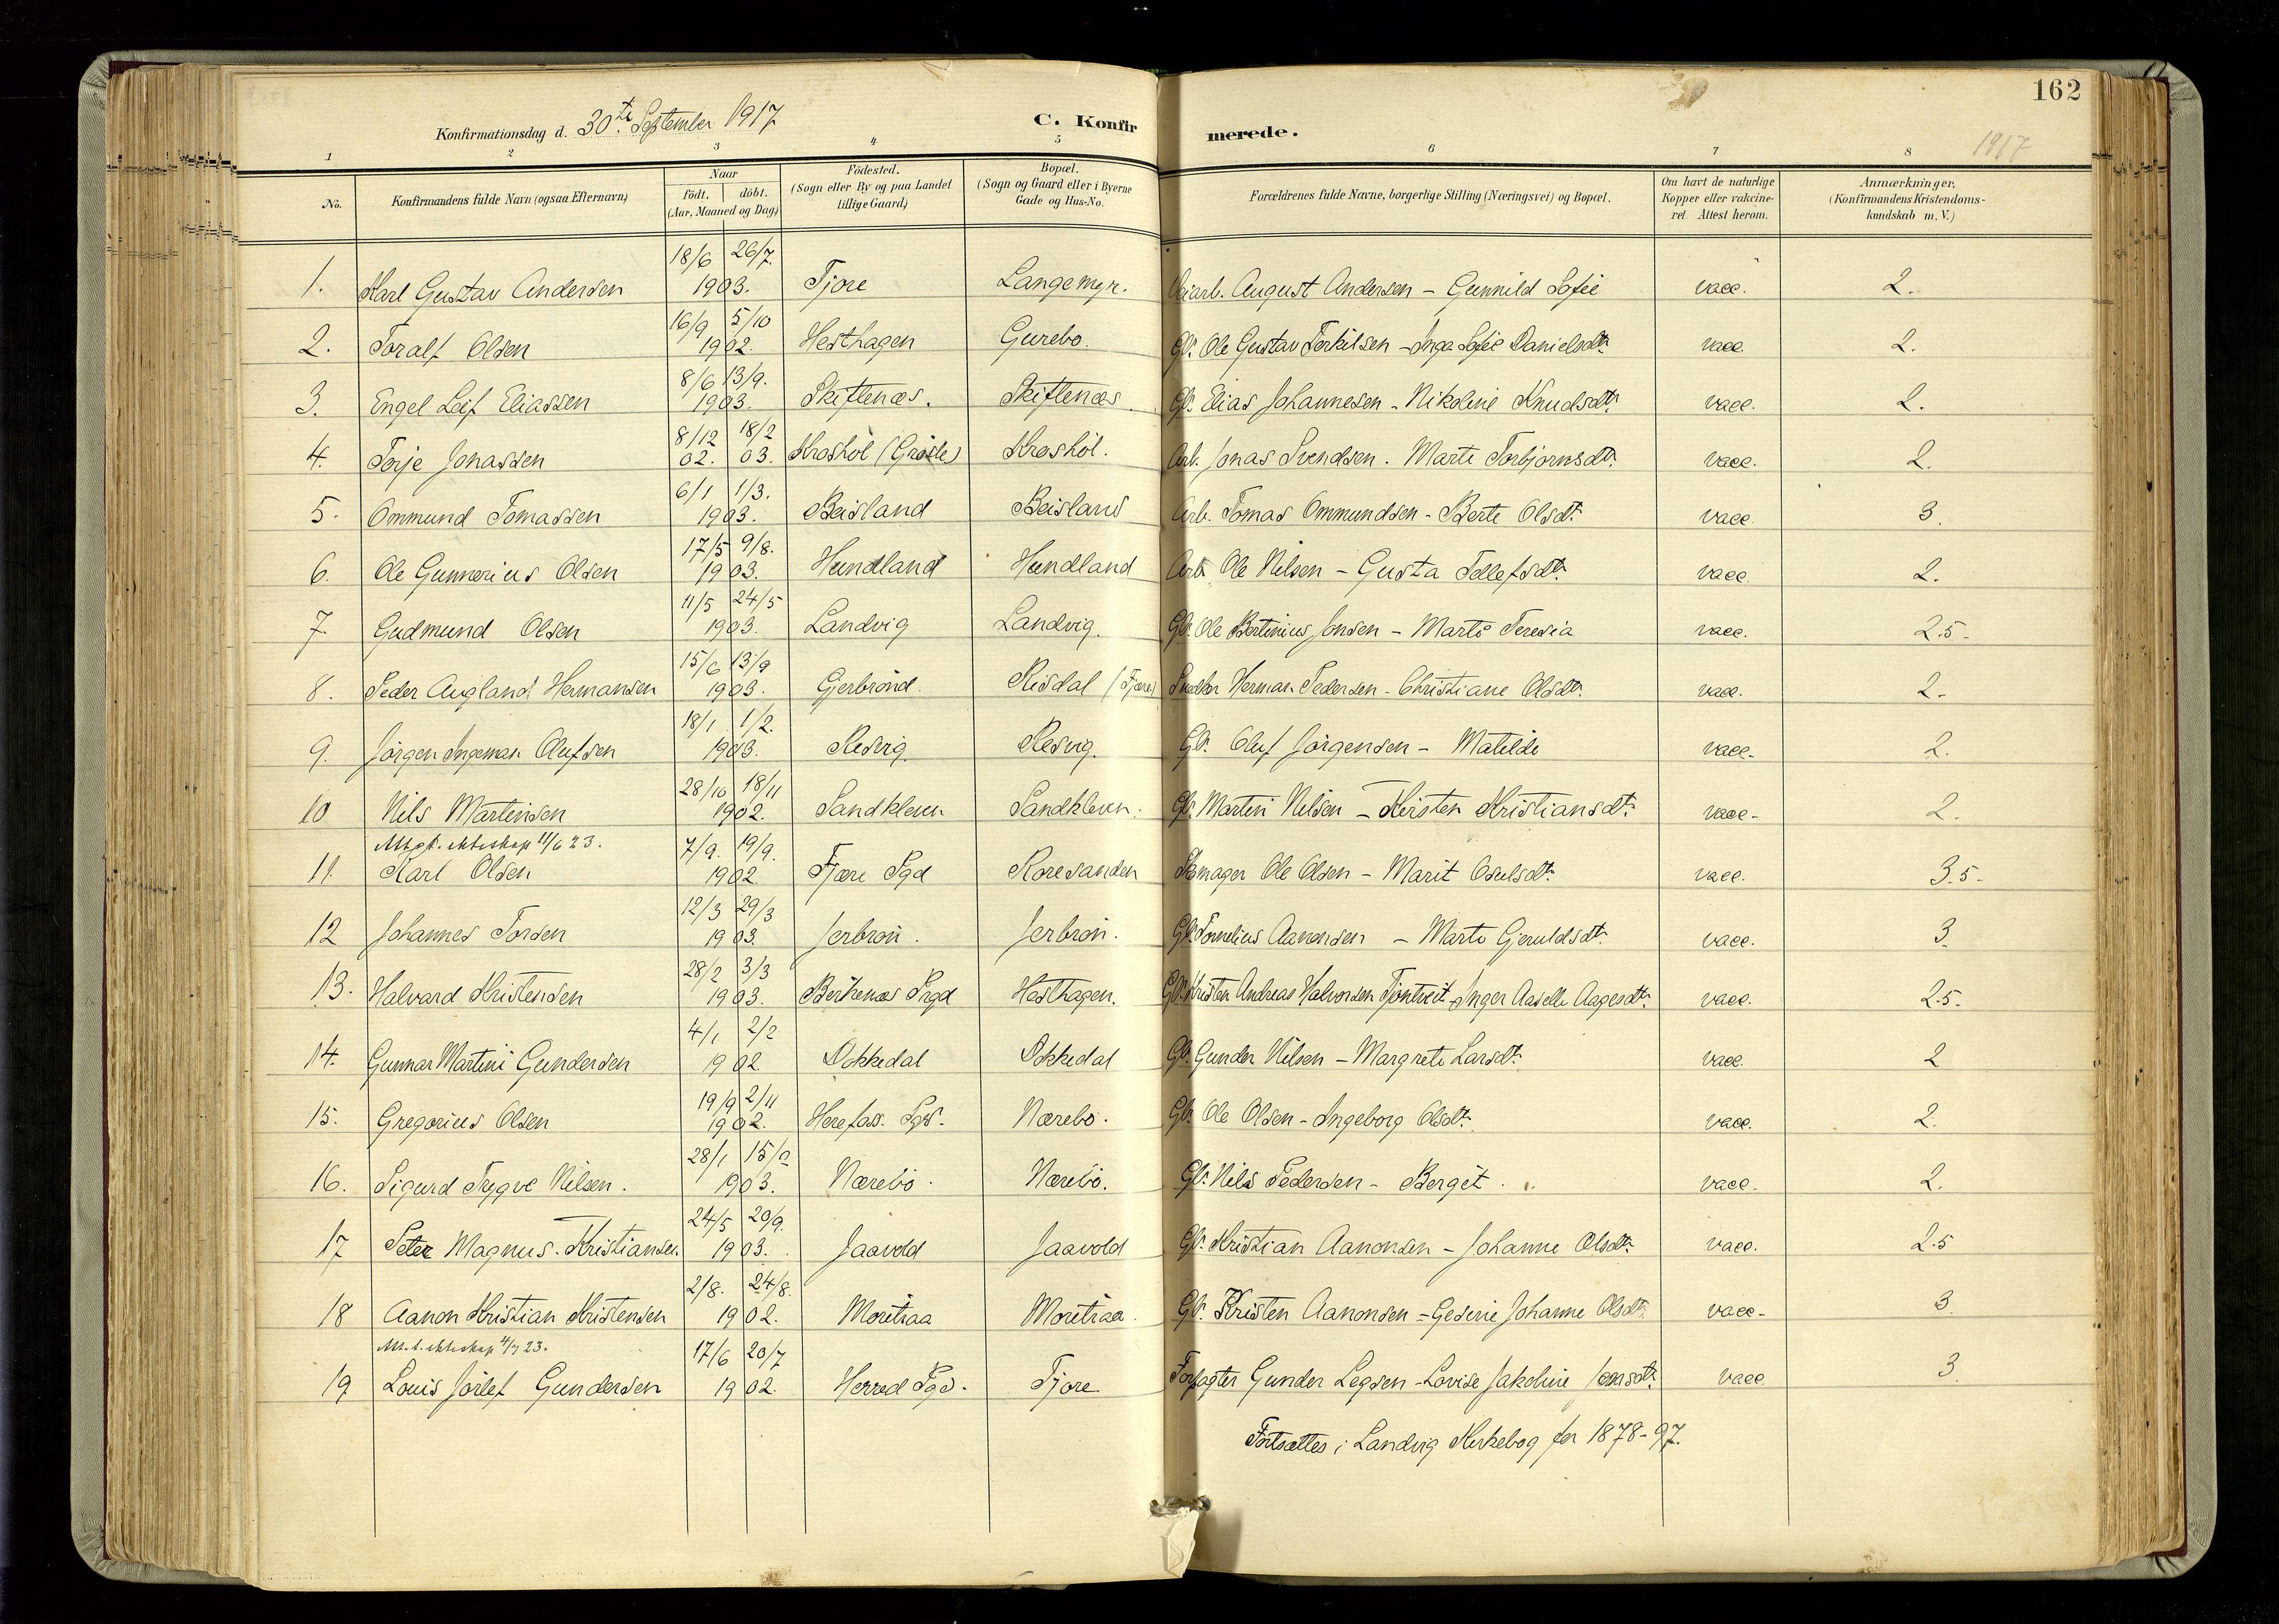 162
1917
Konfirmationsdag d. 30te September 1917
C. Konfirmerede.
1 2 3 4 5 6 7 8
No.
Konfirmandens fulde Navn (ogsaa Efternavn)
Naar
födt. döbt.
(Aar, Maaned og Dag)
Födested.
(Sogn eller By og paa Landet
tillige Gaard)
Bopæl.
(Sogn og Gaard eller i Byerne
Gade og Hus-No.
Forældrenes fulde Navne, borgerlige Stilling (Næringsvei) og Bopæl.
Om havt de naturlige
Kopper eller vakcine-
ret. Attest herom.
Anmærkninger,
(Konfirmandens Kristendoms-
kundskab m. V.)
1. Karl Gustav Andersen 18/6 26/7. 1903. Tjore Langemyr. Veiarb. August Andersen - Gunnild Sofie vacc. 2.
2. Toralf Olsen 16/9 5/10 1902. Hesthagen Gurebo. Gbr. Ole Gustav Terkilsen - Inga Sofie Danielsdtr. vacc. 2.
3. Engel Leif Eliassen 8/6 13/9. 1903. Skiftenæs. Skiftenæs. Gbr. Elias Johannesen - Nikoline Knudsdtr. vacc. 2.
4. Terje Jonassen 8/12 02. 18/2 03. Kroshöl (Groste) Kroshöl. Arb. Jonas Svendsen. Marte Torbjörnsdtr. vacc. 2.
5. Ommund Tomassen 6/1 1/3. 1903. Beisland Beisland Arb. Tomas Ommundsen - Berte Olsdtr. vacc. 3.
6. Ole Gunnerius Olsen 17/5 9/8. 1903. Hundland Hundland Arb Ole Nilsen - Gusta Tellefsdtr. vacc. 2.
7. Gudmund Olsen 11/5 24/5 1903. Landvig Landvig. Gbr. Ole Bertinius Jonsen - Marte Teresia vacc. 2.5.
8. Peder Augland Hermansen 15/6 13/9 1903. Gjerbrönd. Risdal (Fjære) Snedker Herman Pedersen - Christiane Olsdtr. vacc. 2.
9. Jörgen Ingeman Olufsen 18/1 1/2. 1903. Resvig. Resvig. Gbr. Oluf Jörgensen - Matilde vacc. 2.
10 Nils Martinsen 28/10 18/11 1902. Sandkleven Sandkleven. Gbr. Martin Nilsen - Kirsten Kristiansdtr. vacc. 2.
11/6 23.
11. Karl Olsen 7/9. 19/9. 1902. Fjære Pgd Roresanden Skomager Ole Olsen - Marit Osulsdtr. vacc. 3.5.
12 Johannes Torsen 12/3 29/3 1903. Jerbrön. Jerbrön. Gbr. Tornelius Aanonsen - Marte Gjeruldsdtr. vacc. 3.
13. Halvard Kristensen 28/2 3/3 1903. Birkenæs Prgd Hesthagen. Gbr. Kristen Andreas Halvorsen Tjöntveit - Inger Aaselle Aagesdtr. vacc. 2.5.
14. Gunnar Martini Gundersen 4/1 2/2 1902. Dokkedal Dokkedal Gbr. Gunder Nilsen - Margrete Larsdtr. vacc. 2
15. Gregorius Olsen 19/9 2/11 1902. Herefoss. Pgd. Nærebö. Gbr. Ole Olsen - Ingeborg Olsdtr. vacc. 2.
16. Sigurd Trygve Nilsen. 28/1 1903. Nærebö. Nærebö. Gbr. Nils Pedersen - Berget. vacc. 2.
17 Peter Magnus Kristiansen. 24/5 20/9. 1903. Jaavold Jaavold Gbr. Kristian Aanonsen - Johanne Olsdtr. vacc. 2.5
18 Aanon Kristian Kristensen 2/8. 24/8. 1902. Moretraa Moretraa. Gbr. Kristen Aanonsen - Gesine Johanne Olsdtr. vacc. 3.
23.
19 Louis Jörlef Gundersen 17/6 20/7 1902. Herred Pgd. Tjore. Forpagter Gunder Legsen - Lovise Jakoline Jensdtr. vacc. 3.
Fortsættes i Landvig Kirkebog for 1878-97.